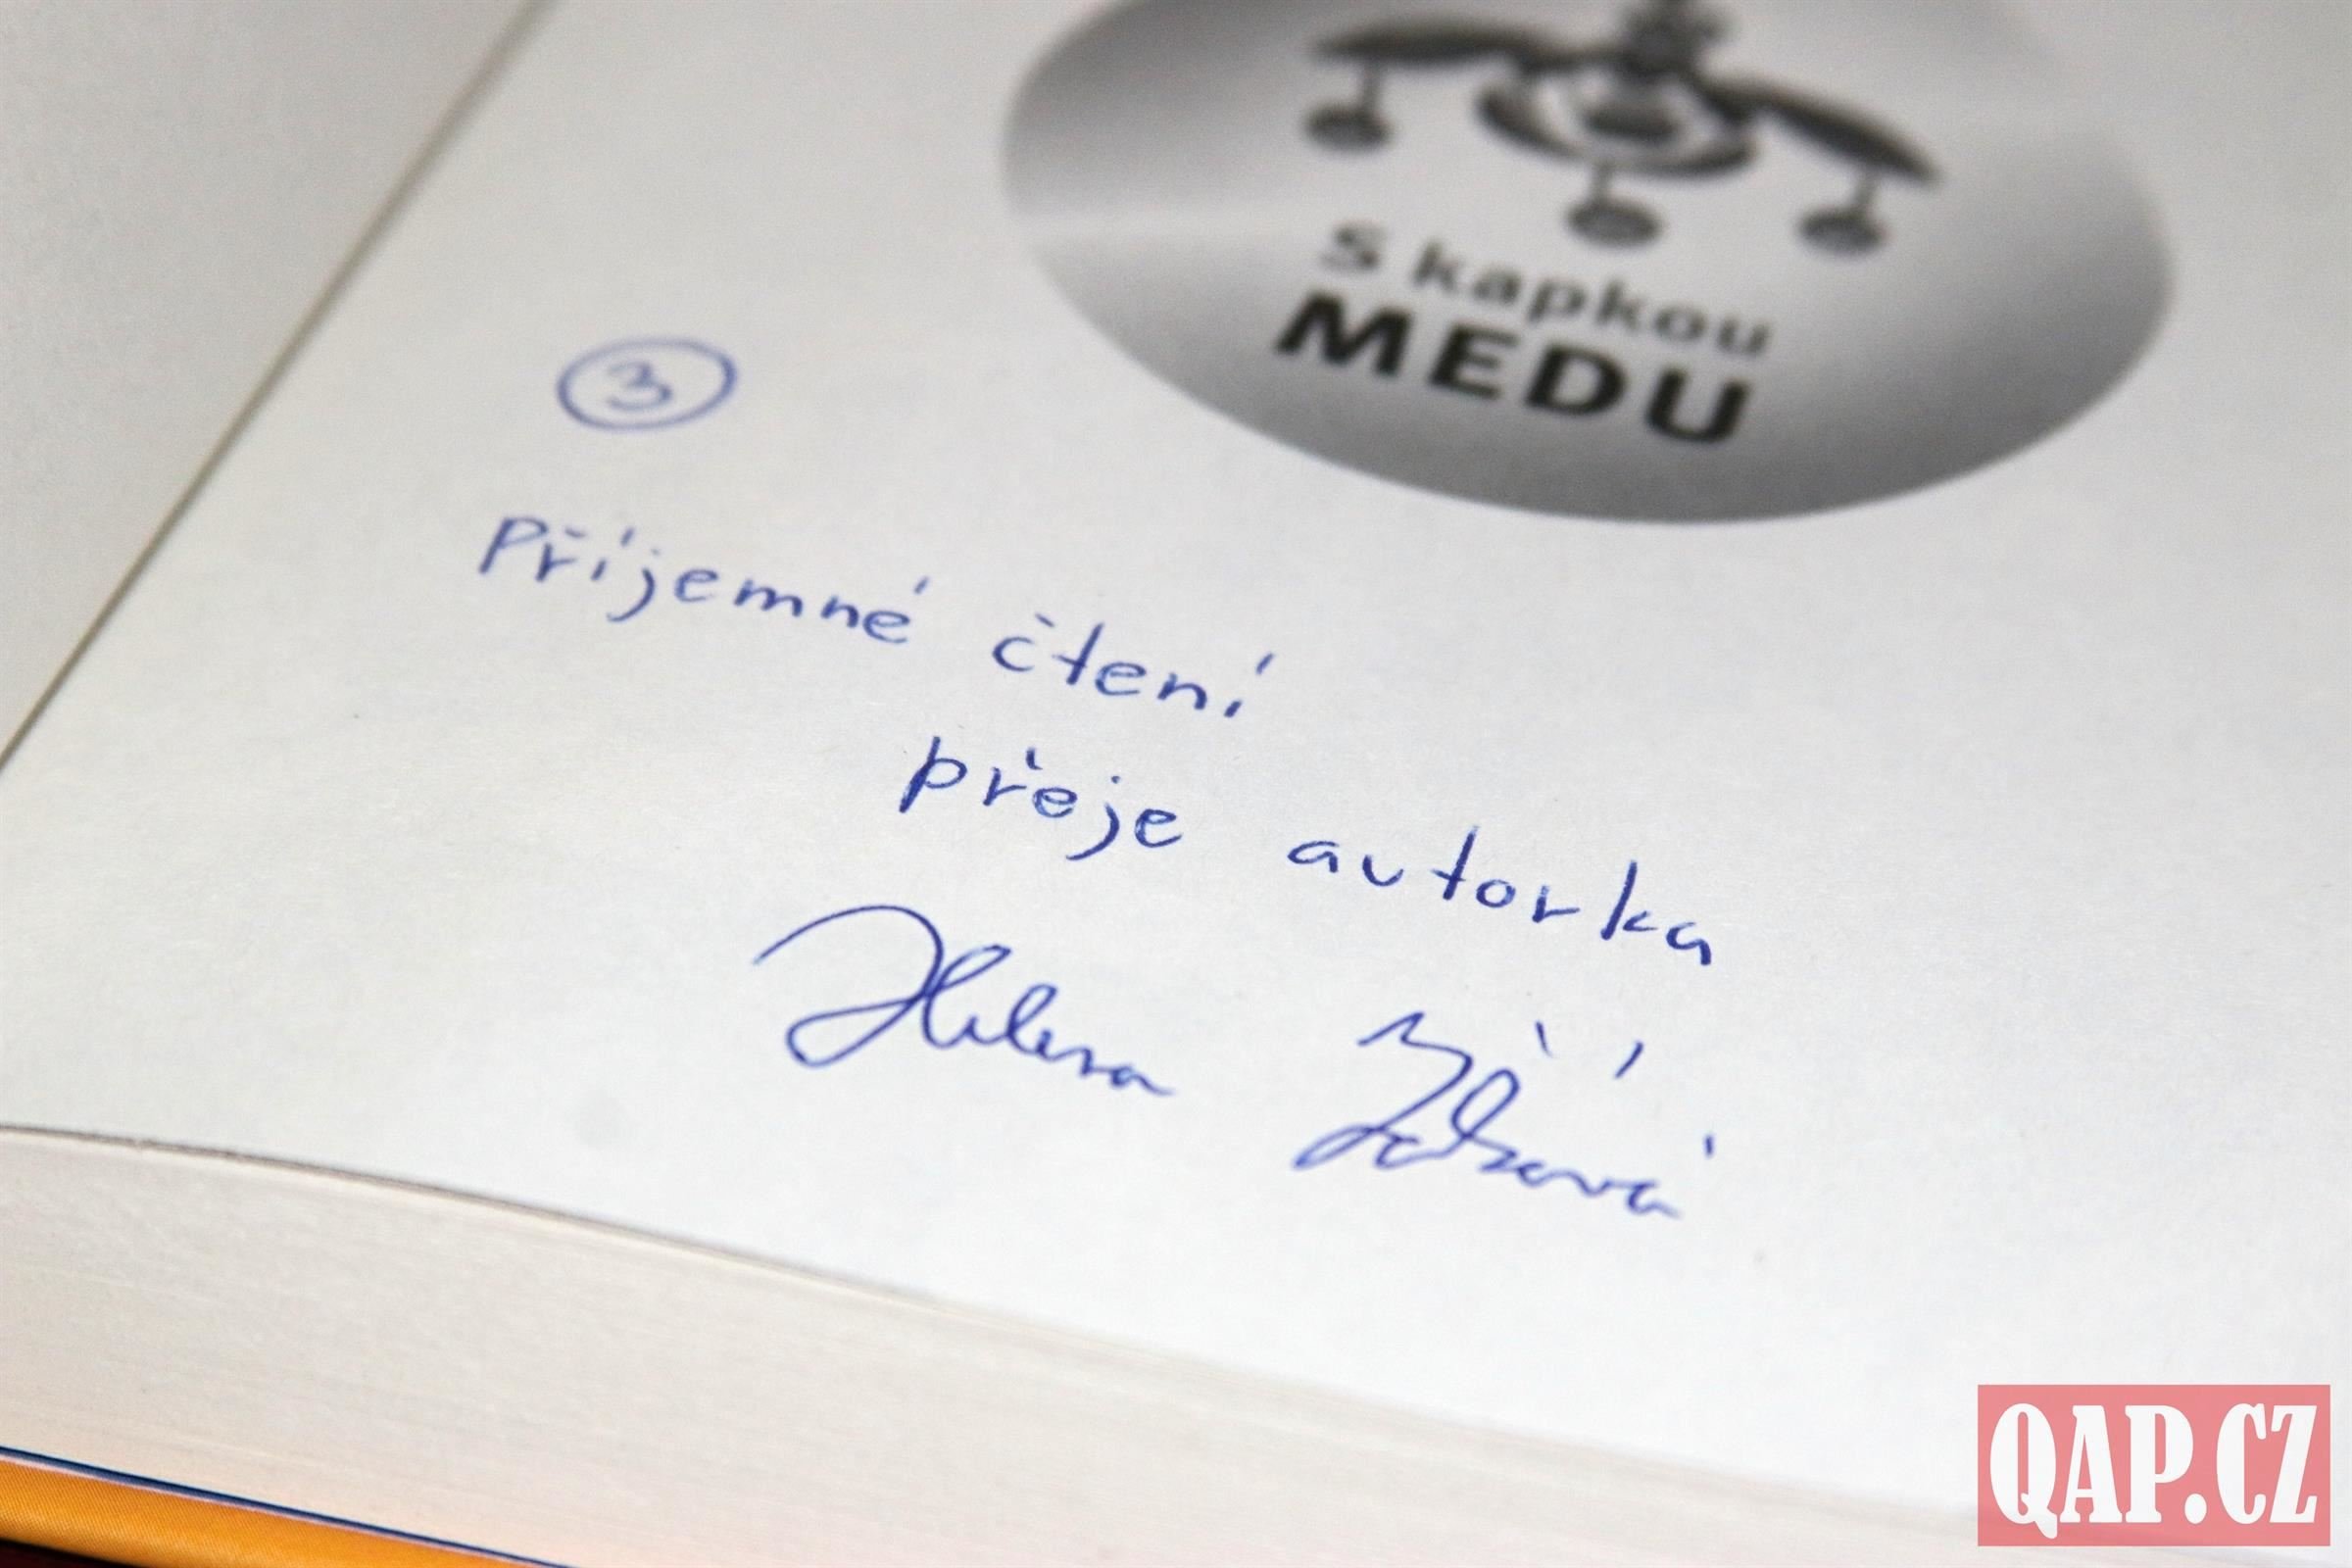 S kapkou
MEDU
3
Příjemné čtení
přeje autorka
Helena
QAP.CZ